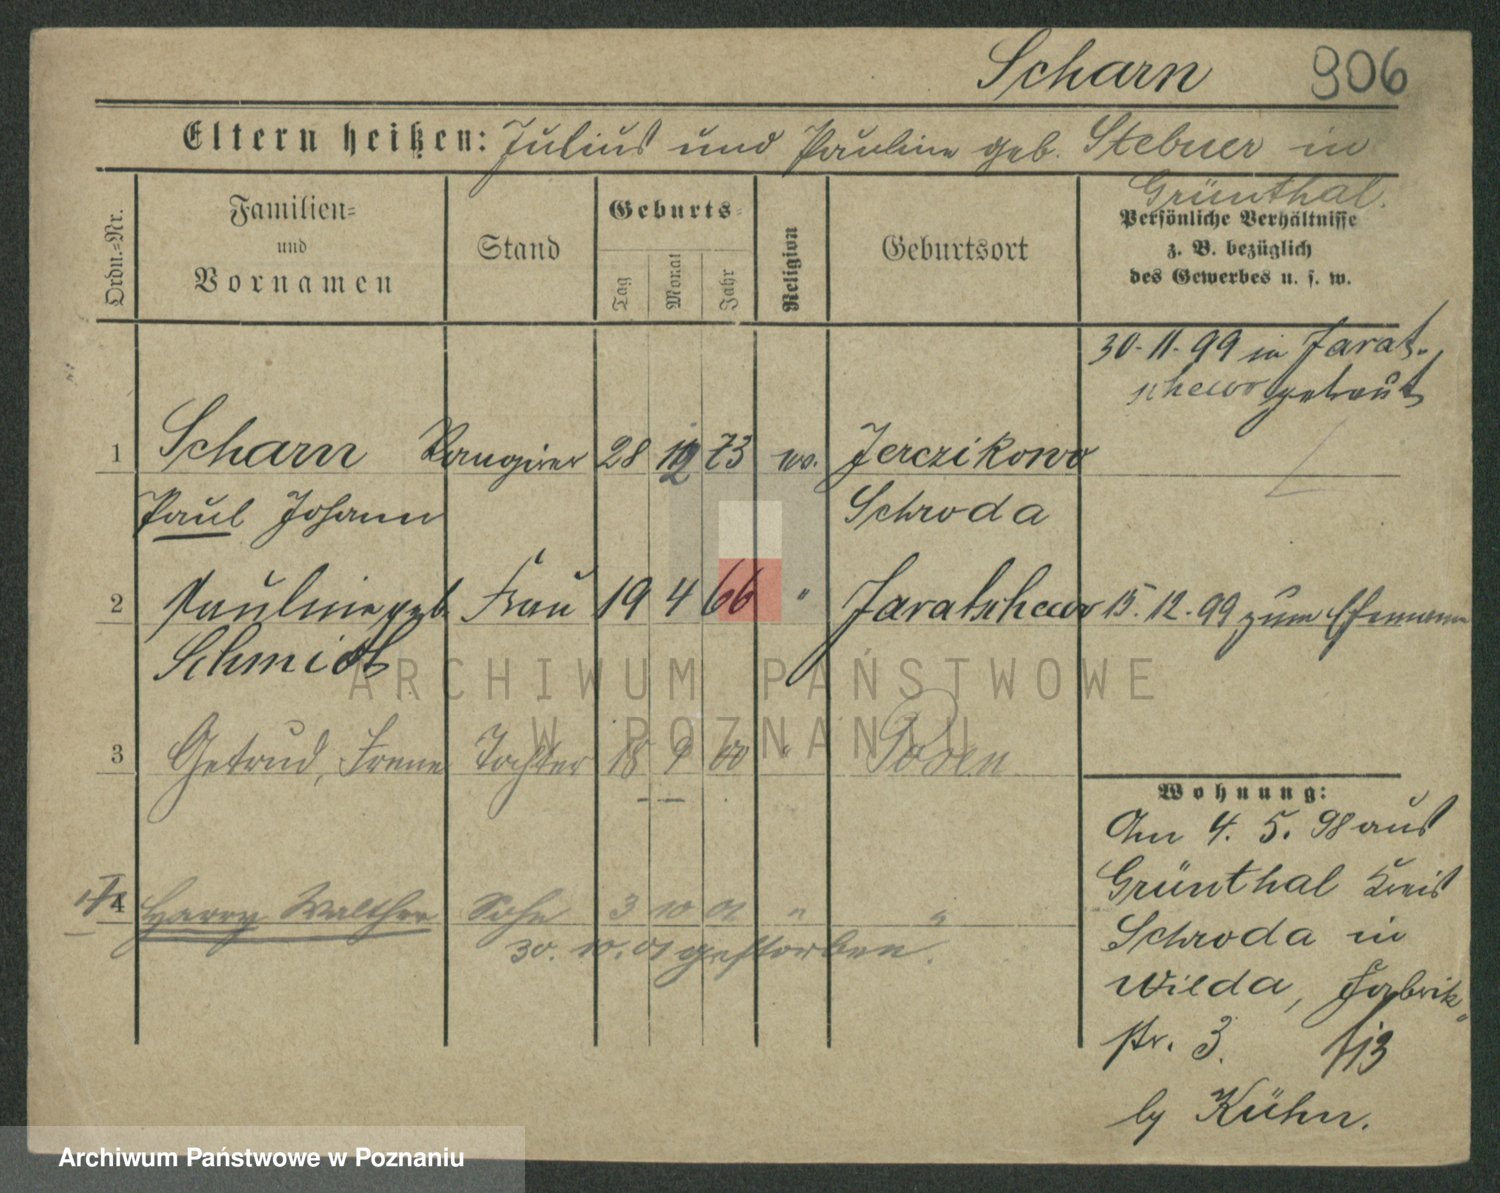 Scharn 906
Eltern heißen: Julius und Pauline geb. Stebner in
Grünthal.
Ordn.=Nr.
Familien=
und
Vornamen
Stand
Geburts=
Tag
Monat
Jahr
Religion
Geburtsort
Persönliche Verhältnisse
z. B. bezüglich
des Gewerbes u. s. w.
30. 11. 99 in Jarat-
schewo getraut
1 Scharn Rangirer 28 12 73 ev. Jerczikowo
Paul Johann Schroda
2 Pauline geb Frau 19 4 66 " Jaratschewo 15. 12. 99 zum Ehemann
Schmidt
3 Getrud, Irene Tochter 18 9 00 " Posen
4 Harry Walther Sohn 3 10 01 " "
30. 10. 01 gestorben.
Wohnung:
Am 4. 5. 98 aus
Grünthal Kreis
Schroda in
Wilda, Fabrik
str. 3.
by Kühn.
ARCHIWUM PAŃSTWOWE
W POZNANIU
Archiwum Państwowe w Poznaniu